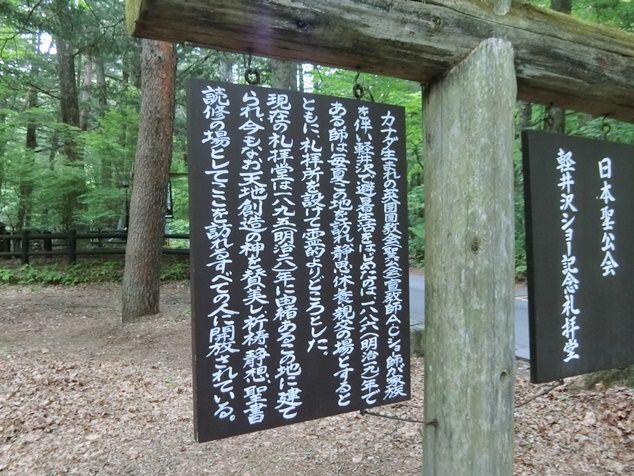 カナダ生まれの英国国教会(聖公会)宣教師A・C・ショー師が家族
を伴い、軽井沢で避暑生活をはじめたのは一八八六(明治一九)年で
ある。師は毎夏この地を訪れ静思、休養、親交の場とすると
ともに、礼拝所を設けて霊的よりどころとした。
現在の礼拝堂は一八九五(明治二八)年に由緒あるこの地に建て
られ今もなお天地創造の神を賛美し祈祷、静想、聖書
読修の場としてここを訪れるすべての人に開放されている。
日本聖公会
軽井沢ショー記念礼拝堂